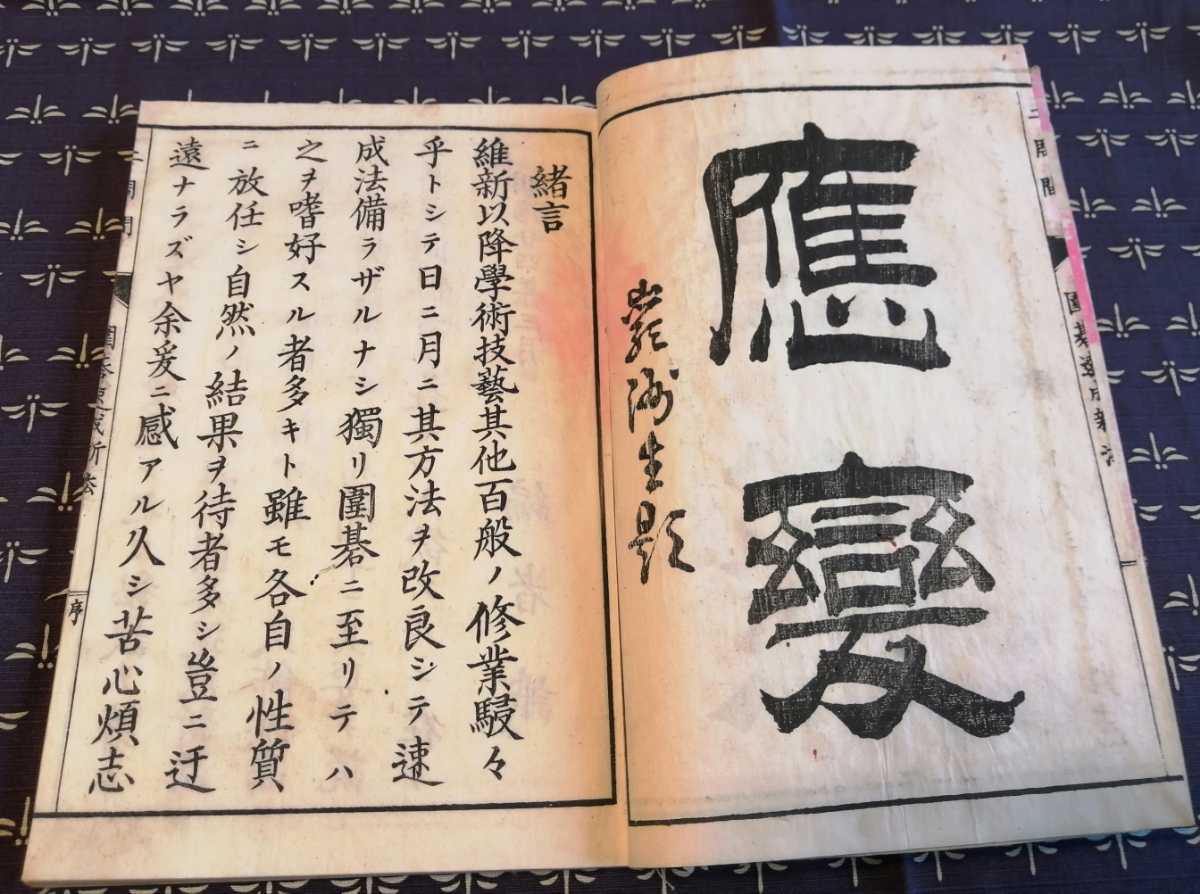 應變
生題
緒言
維新以降學術技藝其他百般ノ修業駸々
乎トシテ日ニ月ニ其方法ヲ改良シテ速
成法備ラザルナシ獨リ圍碁ニ至リテハ
之ヲ嗜好スル者多キト雖モ各自ノ性質
ニ放任シ自然ノ結果ヲ待者多シ豈ニ迂
遠ナラズヤ余爰ニ感アル久シ苦心煩志
序